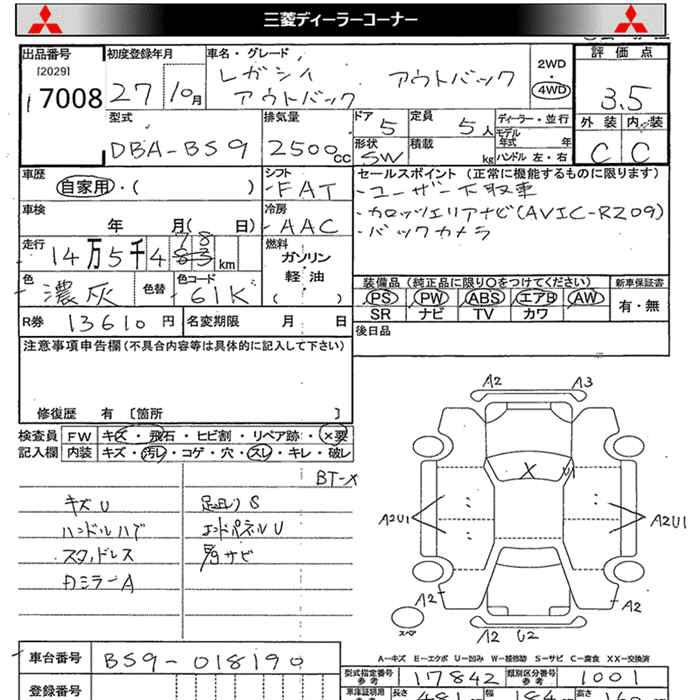 三菱ディーラーコーナー
出品番号 初度登録年月 車名・グレード 2WD・4WD 評価点
[2029] 17008 27 10月 レガシィ アウトバック
アウトバック 3.5
型式 排気量 ドア 5 定員 5人 ディーラー・並行 外装 内装
DBA-BS9 2500cc 形状 SW 積載 kg モデル年式 年式 ハンドル 左・右 C C
車歴 シフト セールスポイント (正常に機能するものに限ります)
自家用・( ) FAT -ユーザー下取車
車検 冷房 -カロッツェリアナビ(AVIC-RZ09)
年 月( 日) AAC -バックカメラ
走行 燃料
14万5千4 78 km ガソリン
軽油
( )
色 色替 色コード 装備品 (純正品に限り○をつけてください) 新車保証書
濃灰 61K PS PW ABS エアB AW 有・無
SR ナビ TV カワ
R券 13610円 名変期限 月 日 後日品
注意事項申告欄(不具合内容等は具体的に記入して下さい)
修復歴 有 〔箇所 〕
検査員 FW キズ・飛石・ヒビ割・リペア跡・×要
記入欄 内装 キズ・汚レ・コゲ・穴・スレ・キレ・破レ
BT-X
キズU 足廻りS
ハンドルハゲ エンドパネルU
スタッドレス 下回サビ
カミラーA
A2 A3
X U1
A2U1 A2U1
A2 A2
スペア
A2 U2
A-キズ E-エクボ U-凹み W-補修跡 S-サビ C-腐食 XX-交換済
車台番号 BS9-018190
型式指定番号 参考 17842 類別区分番号 参考 1001
登録番号 車庫証明用 参考 長さ 481 幅 184 高さ 160